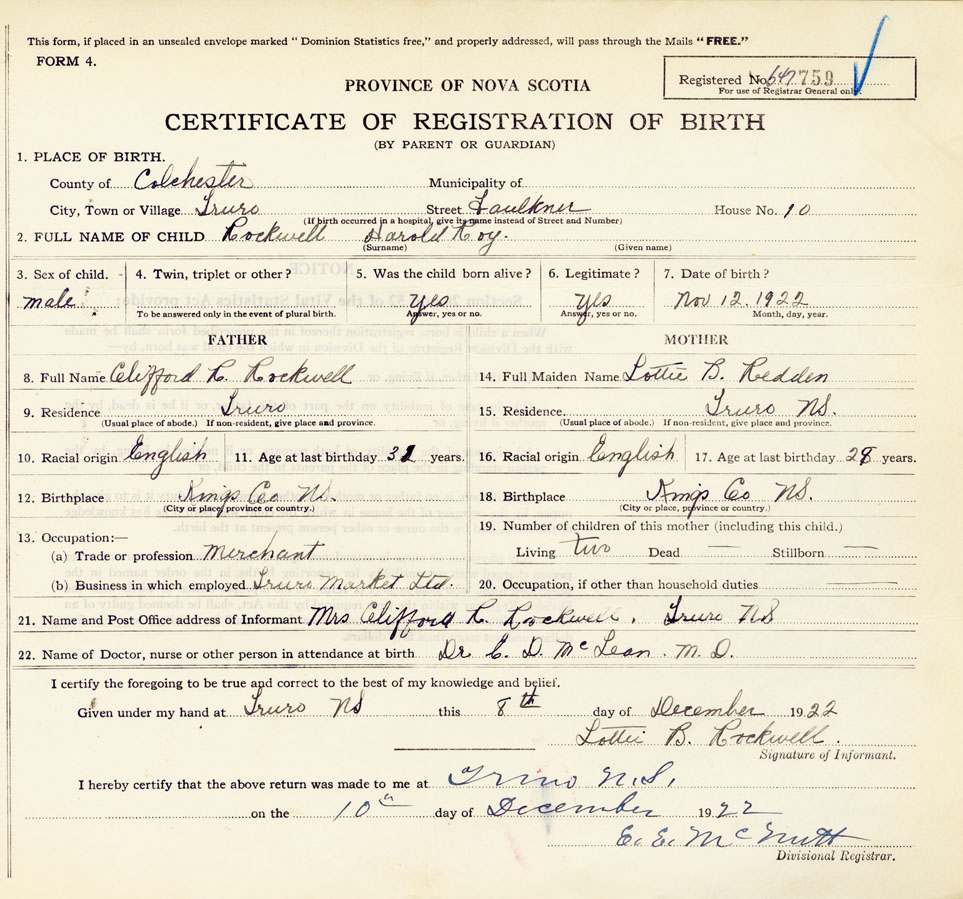 This form, if placed in an unsealed envelope marked " Dominion Statistics free," and properly addressed, will pass through the Mails "FREE."
FORM 4.
Registered No. 759
For use of Registrar General only.
PROVINCE OF NOVA SCOTIA
CERTIFICATE OF REGISTRATION OF BIRTH
(BY PARENT OR GUARDIAN)
1. PLACE OF BIRTH.
County of Colchester Municipality of
City, Town or Village Truro Street Faulkner House No. 10
(If birth occurred in a hospital, give its name instead of Street and Number)
2. FULL NAME OF CHILD Rockwell Harold Roy.
(Surname) (Given name)
3. Sex of child. 4. Twin, triplet or other? 5. Was the child born alive? 6. Legitimate? 7. Date of birth?
male. yes yes Nov 12. 1922
To be answered only in the event of plural birth. Answer, yes or no. Answer, yes or no. Month, day, year.
FATHER MOTHER
8. Full Name Clifford R. Rockwell 14. Full Maiden Name Lottie B. Redden
9. Residence Truro 15. Residence. Truro NS.
(Usual place of abode.) If non-resident, give place and province. (Usual place of abode.) If non-resident, give place and province.
10. Racial origin English 11. Age at last birthday years. 16. Racial origin English 17. Age at last birthday 28 years.
12. Birthplace Kings Co NS. 18. Birthplace Kings Co NS.
(City or place, province or country.) (City or place, province or country.)
19. Number of children of this mother (including this child.)
13. Occupation:— Living two Dead — Stillborn —
(a) Trade or profession Merchant
(b) Business in which employed Truro Market Ltd. 20. Occupation, if other than household duties —
21. Name and Post Office address of Informant Mrs Clifford R. Rockwell, Truro NS
22. Name of Doctor, nurse or other person in attendance at birth Dr. C. D. McLean. M. D.
I certify the foregoing to be true and correct to the best of my knowledge and belief.
Given under my hand at Truro NS this 8th day of December 1922
Lottie B. Rockwell.
Signature of Informant.
I hereby certify that the above return was made to me at Truro N.S.,
on the 10th day of December 1922
E. E. McNutt
Divisional Registrar.